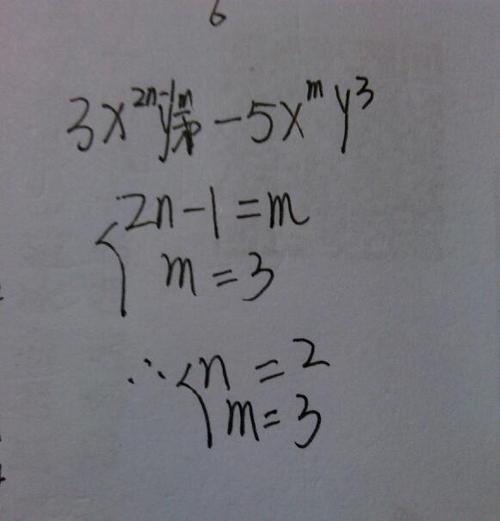 6
3x^{2n-1}y^{m} - 5x^{m}y^{3}
{2n-1=m
m=3
∴ {n=2
m=3